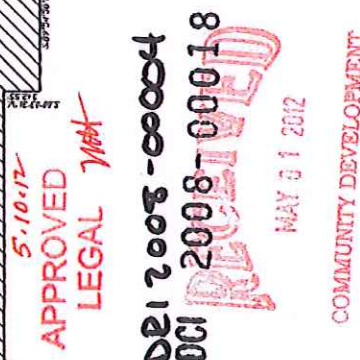 5.10.12
APPROVED
LEGAL
DRI 2008-00004
DCI 2008-00018
RECEIVED
MAY 01 2012
COMMUNITY DEVELOPMENT